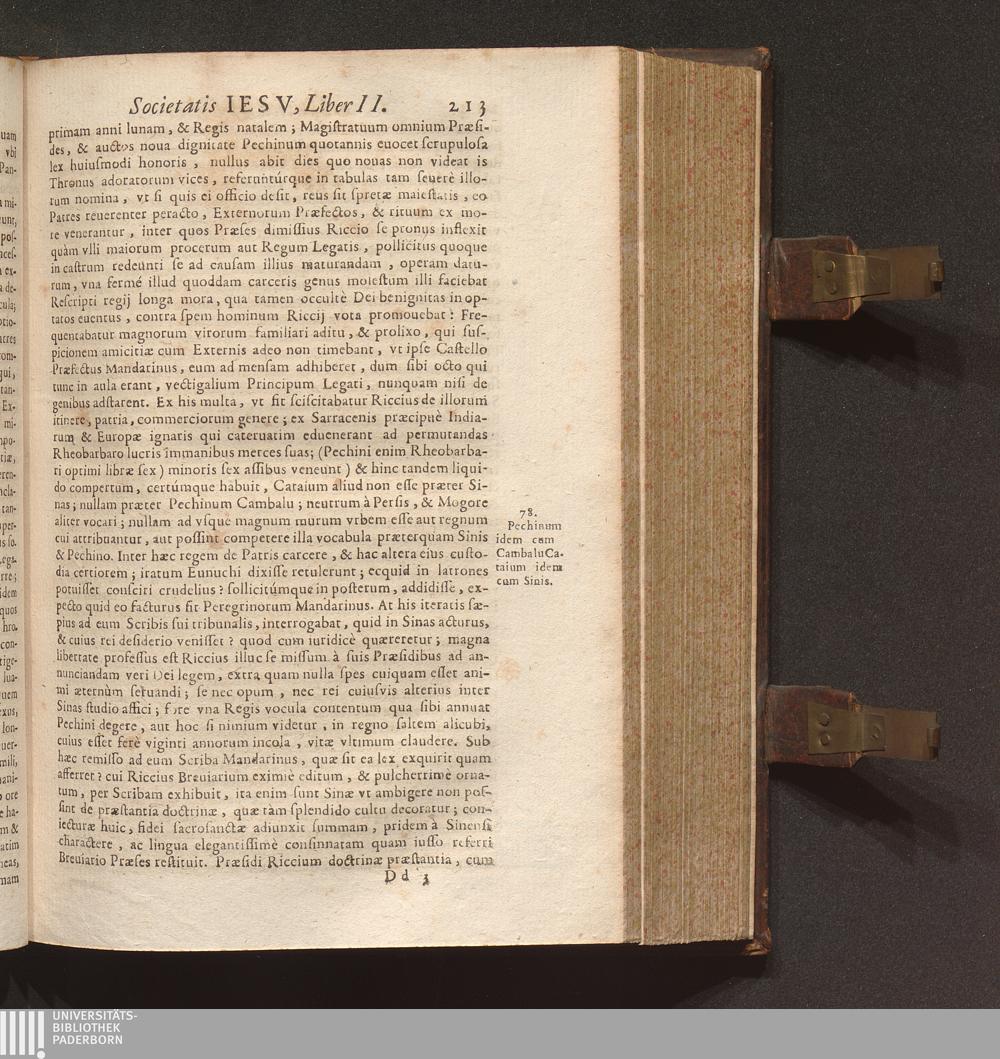 Societatis IESV, Liber II. 213
primam anni lunam, & Regis natalem ; Magiſtratuum omnium Præſi-
des, & auctos noua dignitate Pechinum quotannis euocet ſcrupuloſa
lex huiuſmodi honoris , nullus abit dies quo nouas non videat is
Thronus adoratorum vices , referuntúrque in tabulas tam ſeuerè illo-
rum nomina , vt ſi quis ei officio deſit, reus ſit ſpretæ maieſtatis , eo
Patres reuerenter peracto , Externorum Præfectos, & rituum ex mo-
re venerantur , inter quos Præſes dimiſſius Riccio ſe pronus inflexit
quàm vlli maiorum procerum aut Regum Legatis , pollicitus quoque
in caſtrum redeunti ſe ad cauſam illius maturandam , operam datu-
rum, vna fermé illud quoddam carceris genus moleſtum illi faciebat
Reſcripti regij longa mora, qua tamen occultè Dei benignitas in op-
tatos euentus , contra ſpem hominum Riccij vota promouebat : Fre-
quentabatur magnorum virorum familiari aditu, & prolixo, qui ſuſ-
picionem amicitiæ cum Externis adeo non timebant , vt ipſe Caſtello
Præfectus Mandarinus , eum ad menſam adhiberet , dum ſibi octo qui
tunc in aula erant , vectigalium Principum Legati, nunquam niſi de
genibus adſtarent. Ex his multa, vt fit ſciſcitabatur Riccius de illorum
itinere, patria, commerciorum genere ; ex Sarracenis præcipuè India-
rum & Europæ ignaris qui cateruatim eduenerant ad permutandas
Rheobarbaro lucris immanibus merces ſuas; (Pechini enim Rheobarba-
ri optimi libræ ſex ) minoris ſex aſſibus veneunt ) & hinc tandem liqui-
do compertum, certúmque habuit, Cataium aliud non eſſe præter Si-
nas; nullam præter Pechinum Cambalu ; neutrum à Perſis , & Mogore
aliter vocari ; nullam ad vſque magnum murum vrbem eſſe aut regnum
cui attribuantur , aut poſſint competere illa vocabula præterquam Sinis
& Pechino. Inter hæc regem de Patris carcere , & hac altera eius cuſto-
dia certiorem ; iratum Eunuchi dixiſſe retulerunt ; ecquid in latrones
potuiſſet conſciri crudelius ? ſollicitúmque in poſterum, addidiſſe , ex-
pecto quid eo facturus ſit Peregrinorum Mandarinus. At his iteratis ſæ-
pius ad eum Scribis ſui tribunalis, interrogabat, quid in Sinas acturus,
& cuius rei deſiderio veniſſet ? quod cum iuridicè quæreretur ; magna
libertate profeſſus eſt Riccius illuc ſe miſſum à ſuis Præſidibus ad an-
nunciandam veri Dei legem, extra quam nulla ſpes cuiquam eſſet ani-
mi æternùm ſeruandi ; ſe nec opum , nec rei cuiuſvis alterius inter
Sinas ſtudio affici ; fore vna Regis vocula contentum qua ſibi annuat
Pechini degere , aut hoc ſi nimium videtur , in regno ſaltem alicubi,
cuius eſſet ferè viginti annorum incola , vitæ vltimum claudere. Sub
hæc remiſſo ad eum Scriba Mandarinus , quæ ſit ea lex exquirit quam
afferret ? cui Riccius Breuiarium eximiè editum , & pulcherrimè orna-
tum, per Scribam exhibuit, ita enim ſunt Sinæ vt ambigere non poſ-
ſint de præſtantia doctrinæ , quæ tàm ſplendido cultu decoratur ; con-
iecturæ huic, fidei ſacroſanctæ adiunxit ſummam , pridem à Sinenſi
charactere , ac lingua elegantiſſimè conſinnatam quam iuſſo referri
Breuiario Præſes reſtituit. Præſidi Riccium doctrinæ præſtantia, cum
Dd 3
78.
Pechinum
idem cum
Cambalu Ca-
taium idem
cum Sinis.
UNIVERSITÄTS-
BIBLIOTHEK
PADERBORN